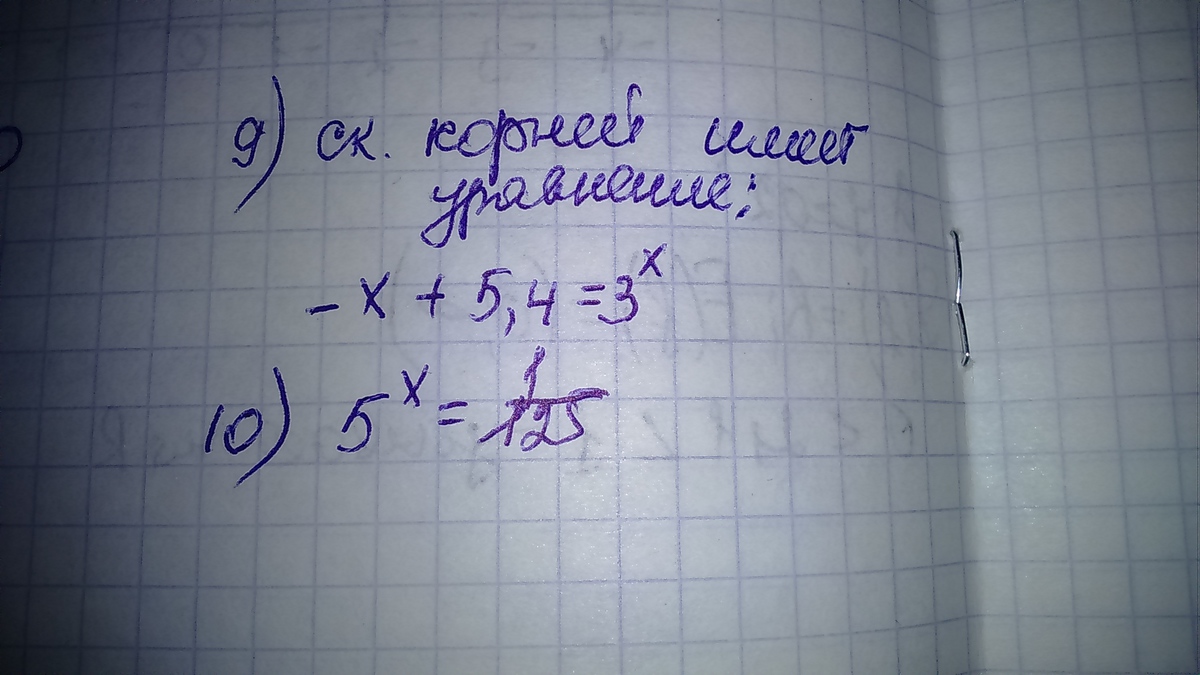 9) ск. корней имеет
уравнение:
-x + 5,4 = 3^x
10) 5^x = 1/125